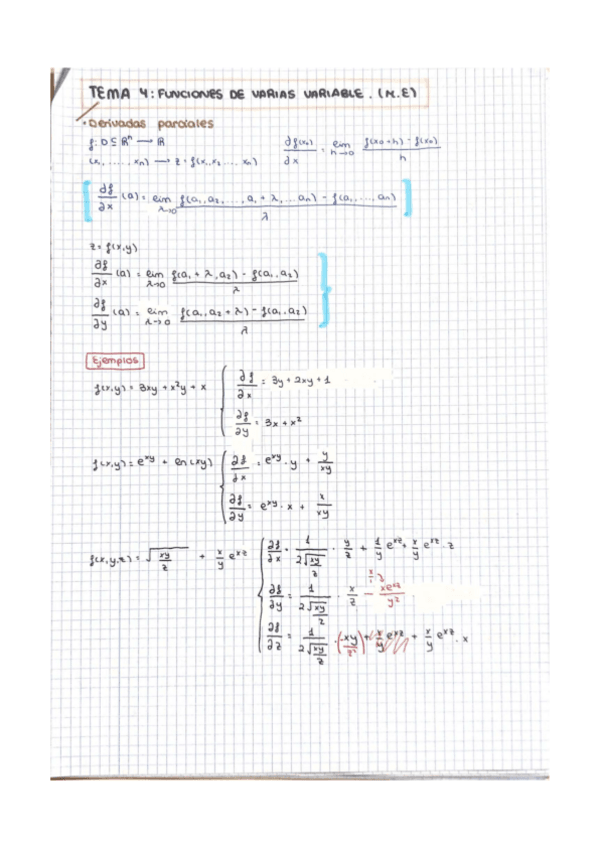 TEMA 4: FUNCIONES DE VARIAS VARIABLE. (M.E)
• Derivadas parciales
f: D ⊆ ℝⁿ → ℝ
(x₁, ..., xₙ) → z = f(x₁, x₂ ... xₙ)
∂f(x₀)/∂x = lim h→0 (f(x₀+h) - f(x₀))/h
∂f/∂x (a) = lim λ→0 (f(a₁, a₂, ..., aᵢ + λ, ... aₙ) - f(a₁, ..., aₙ))/λ
z = f(x,y)
∂f/∂x (a) = lim λ→0 (f(a₁ + λ, a₂) - f(a₁, a₂))/λ
∂f/∂y (a) = lim λ→0 (f(a₁, a₂ + λ) - f(a₁, a₂))/λ
Ejemplos
f(x,y) = 3xy + x²y + x
∂f/∂x = 3y + 2xy + 1
∂f/∂y = 3x + x²
f(x,y) = e^xy + ln(xy)
∂f/∂x = e^xy · y + y/xy
∂f/∂y = e^xy · x + x/xy
f(x,y,z) = √(xy/z) + x/y e^xz
∂f/∂x = 1/(2√(xy/z)) · y/z + 1/y e^xz + x/y e^xz · z
∂f/∂y = 1/(2√(xy/z)) · x/z - xe^xz/y²
∂f/∂z = 1/(2√(xy/z)) · (-xy/z²) + x/y e^xz + x/y e^xz · x